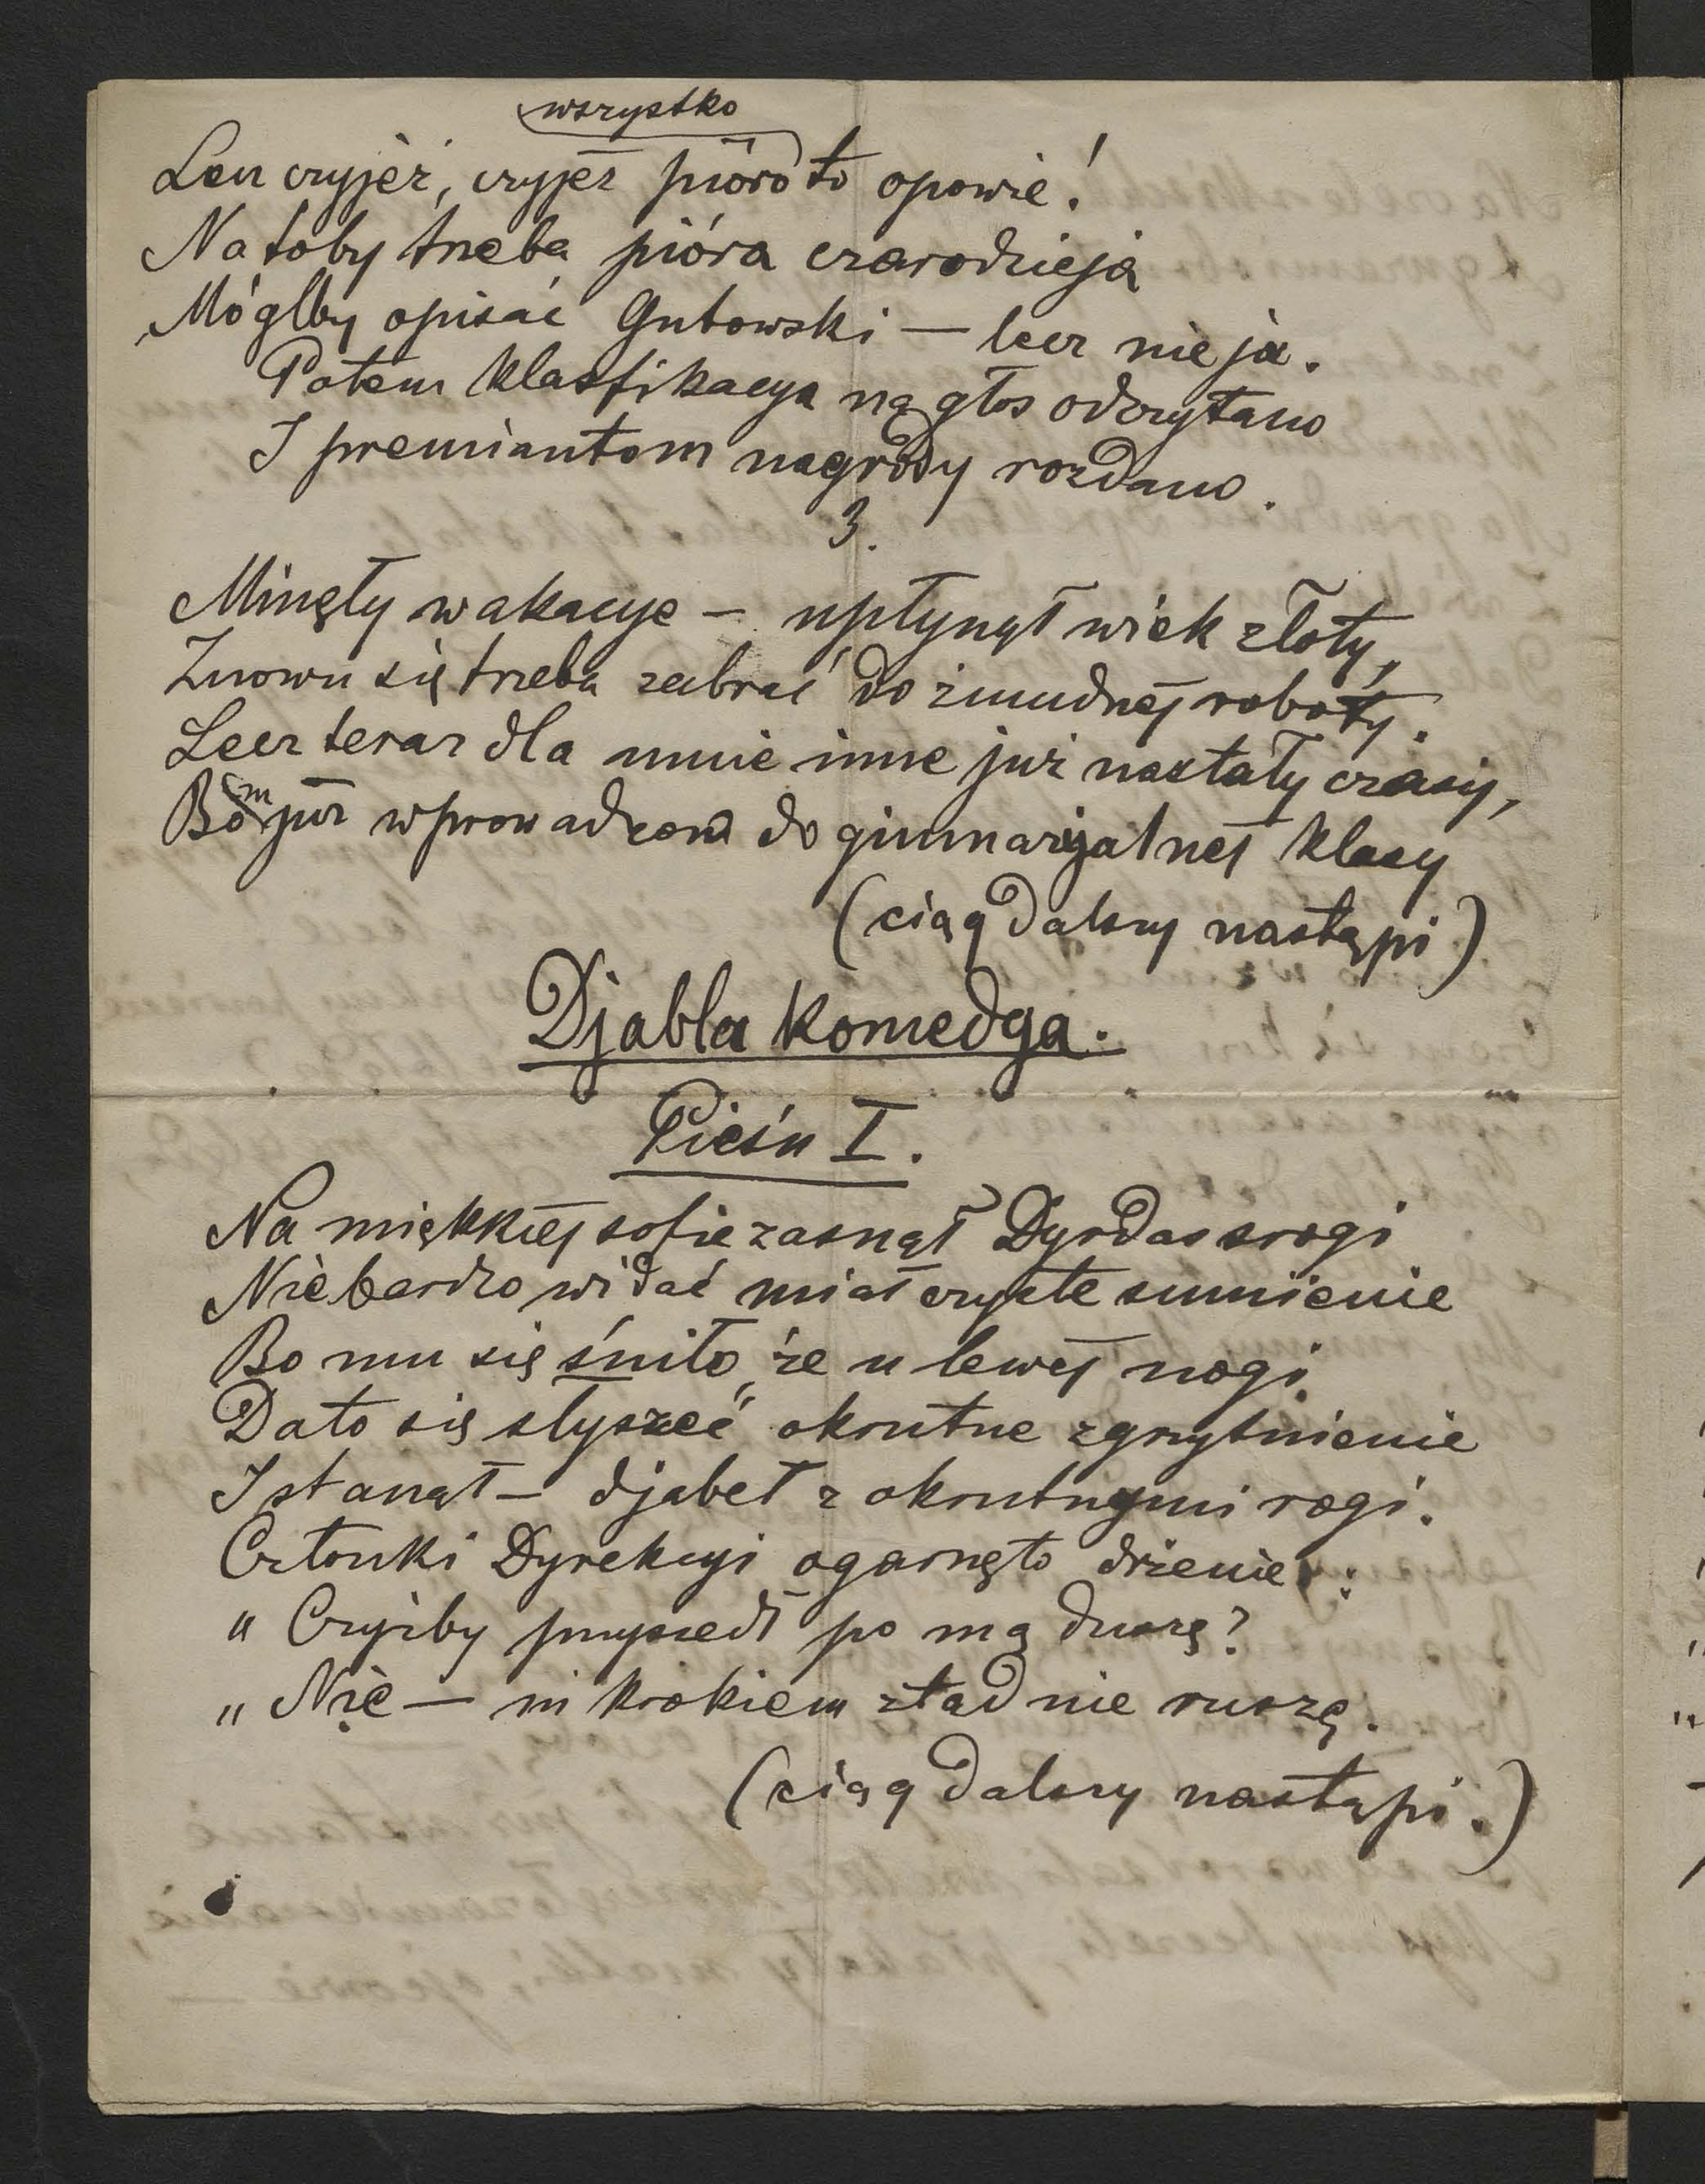 wszystko
Lecz czyjeż, czyjeż pióro to opowie!
Na toby trzeba pióra czarodzieja
Mógłby opisać Gutowski — lecz nie ja.
Potem klasfikacya na głos odczytano
I premiantom nagrody rozdano.
3.
Minęły wakacye — upłynął wiek złoty,
Znowu się trzeba zabrać do żmudnéj roboty.
Lecz teraz dla mnie inne już nastały czasy,
Bom już wprowadzon do gimnazyjalnéj klasy
(ciąg dalszy nastąpi)
Djabla komedya.
Pieśń I.
Na miękkiéj sofie zasnął Dyrdas srogi
Nie bardzo widać miał czyste sumienie
Bo mu się śniło, że u lewéj nogi
Dało się słyszeć okrutne zgrzytnienie
I stanął — djabeł z okrutnymi rogi.
Członki Dyrekcyi ogarnęło drżenie:
"Czyżby przyszedł po mą duszę?
"Nie — ni krokiem ztąd nie ruszę.
(ciąg dalszy nastąpi.)